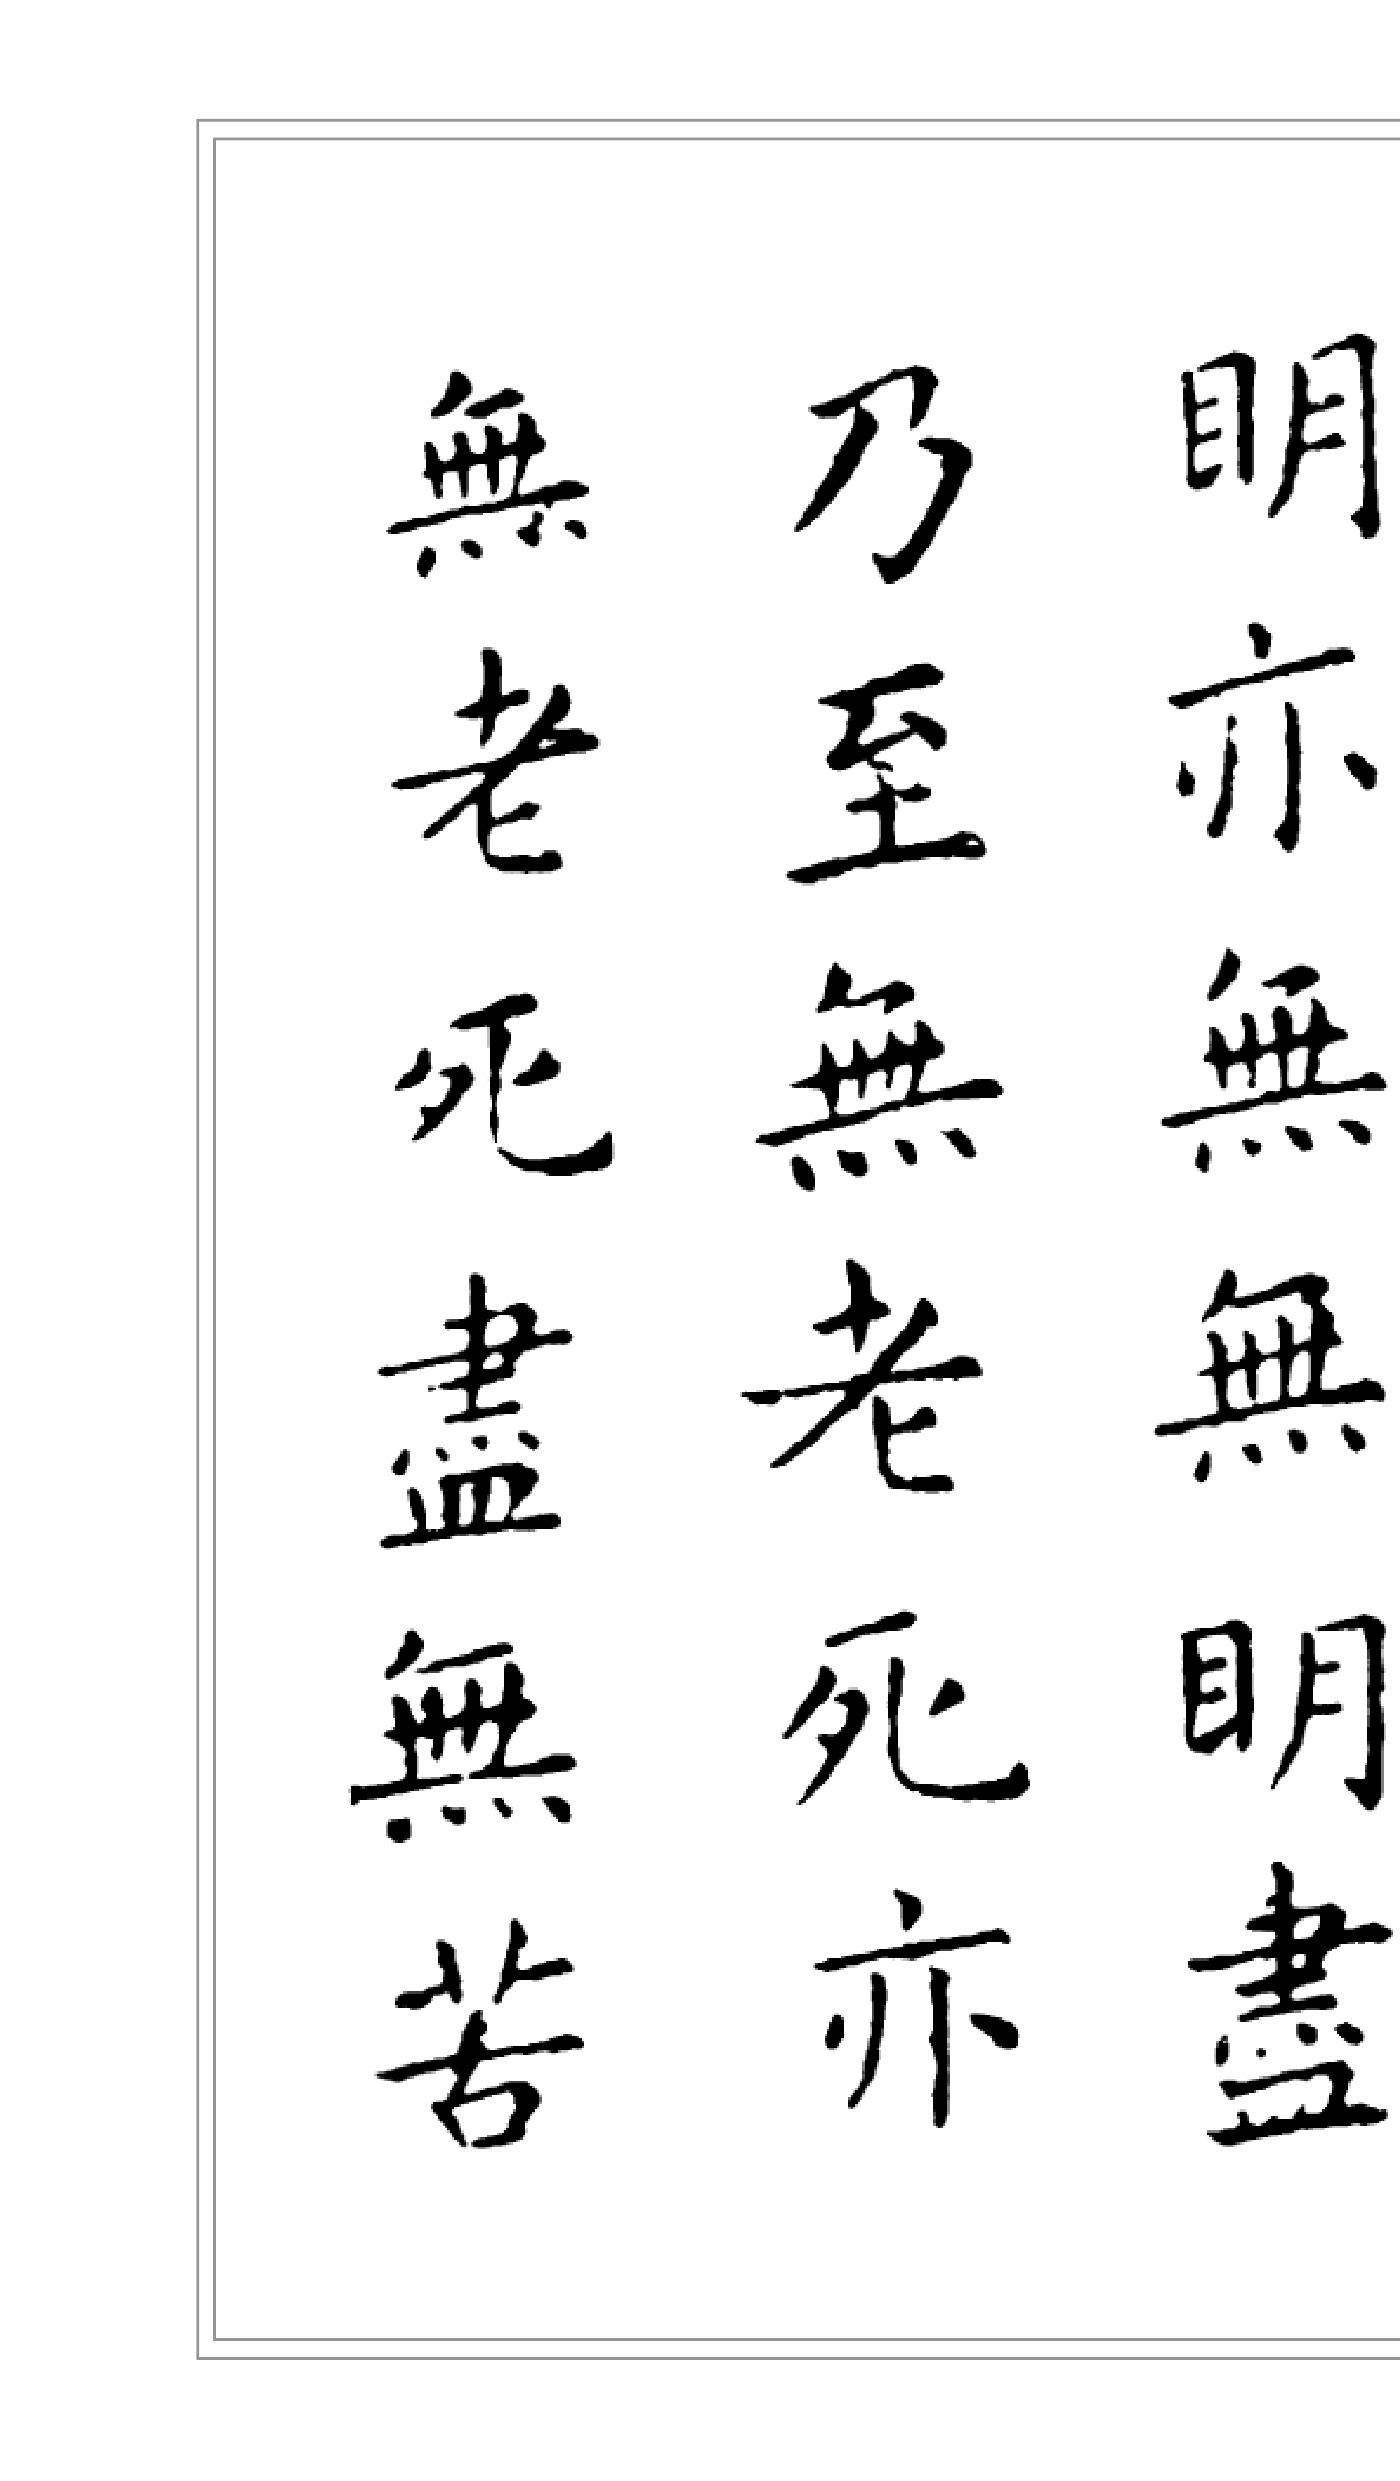 明亦無無明盡
乃至無老死亦
無老死盡無苦